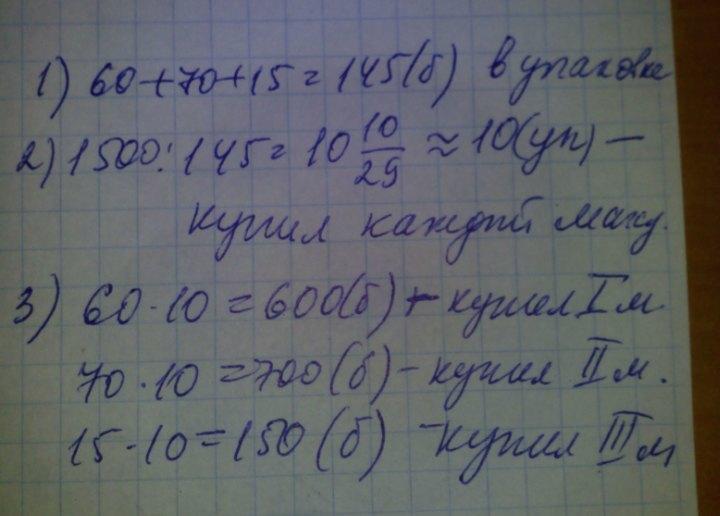 1) 60+70+15=145(б) в упаковке
2) 1500:145=10 10/29 ≈ 10(уп) —
купил каждый магаз.
3) 60·10=600(б) - купил I м
70·10=700(б) - купил II м.
15·10=150(б) - купил III м